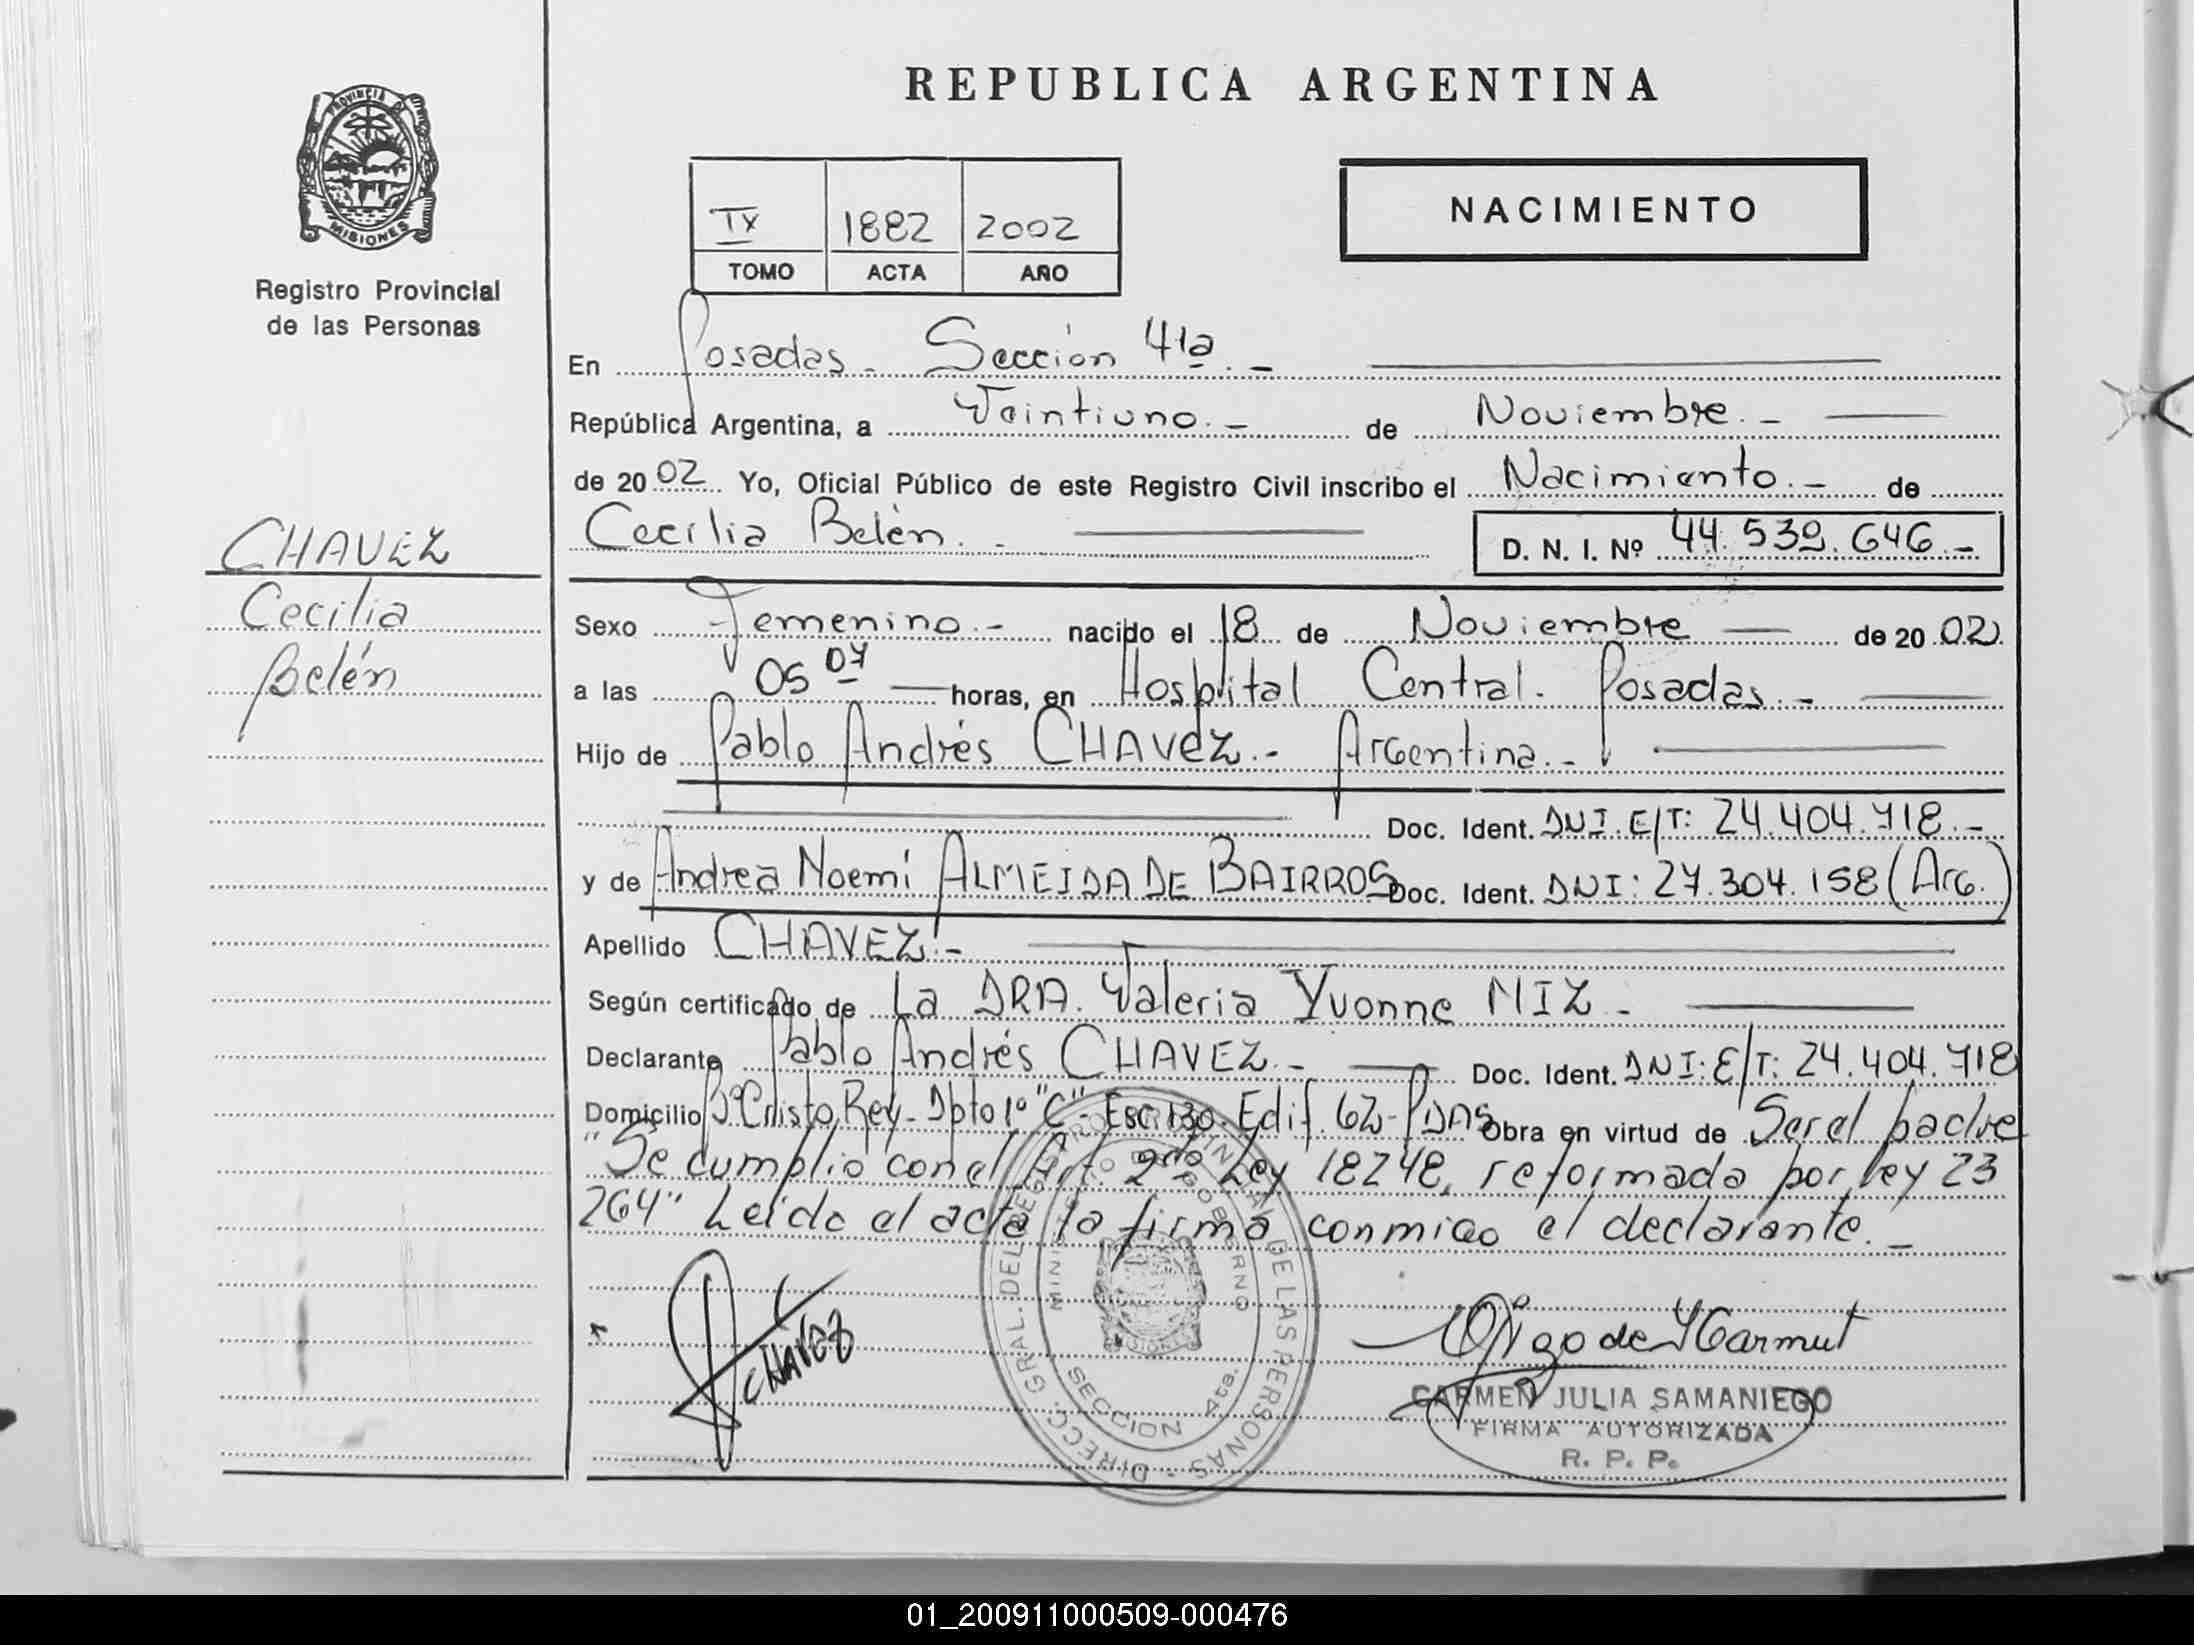 REPUBLICA ARGENTINA
PROVINCIA DE
MISIONES
Registro Provincial
de las Personas
IX 1882 2002
TOMO ACTA AÑO
NACIMIENTO
En Posadas. Sección 41a. -
República Argentina, a Veintiuno. - de Noviembre. -
de 2002 Yo, Oficial Público de este Registro Civil inscribo el Nacimiento. - de
Cecilia Belén. - D. N. I. Nº 44.539.646. -
CHAVEZ
Cecilia
Belén
Sexo Femenino. - nacido el 18 de Noviembre de 2002
a las 05 07 horas, en Hospital Central. Posadas. -
Hijo de Pablo Andrés CHAVEZ. - Argentina. -
Doc. Ident. DNI. E/T: 24.404.718. -
y de Andrea Noemí ALMEIDA DE BAIRROS Doc. Ident. DNI: 27.304.158 (Arg.)
Apellido CHAVEZ. -
Según certificado de La DRA. Valeria Yvonne MIZ. -
Declarante Pablo Andrés CHAVEZ. - Doc. Ident. DNI: E/T: 24.404.718
Domicilio Bº Cristo Rey - Dpto 1º "C" - Esc. 130. Edif. 62 - PDAS Obra en virtud de Ser el padre
"Se cumplió con el Art 2do Ley 18248, reformada por ley 23
264" Leído el acta la firma conmigo el declarante. -
CHAVEZ
DIRECC. GRAL. DEL REGISTRO PROVINCIAL DE LAS PERSONAS -
MINISTERIO DE GOBIERNO
SECCION 4ta.
de Karmut
CARMEN JULIA SAMANIEGO
FIRMA AUTORIZADA
R. P. P.
01_200911000509-000476